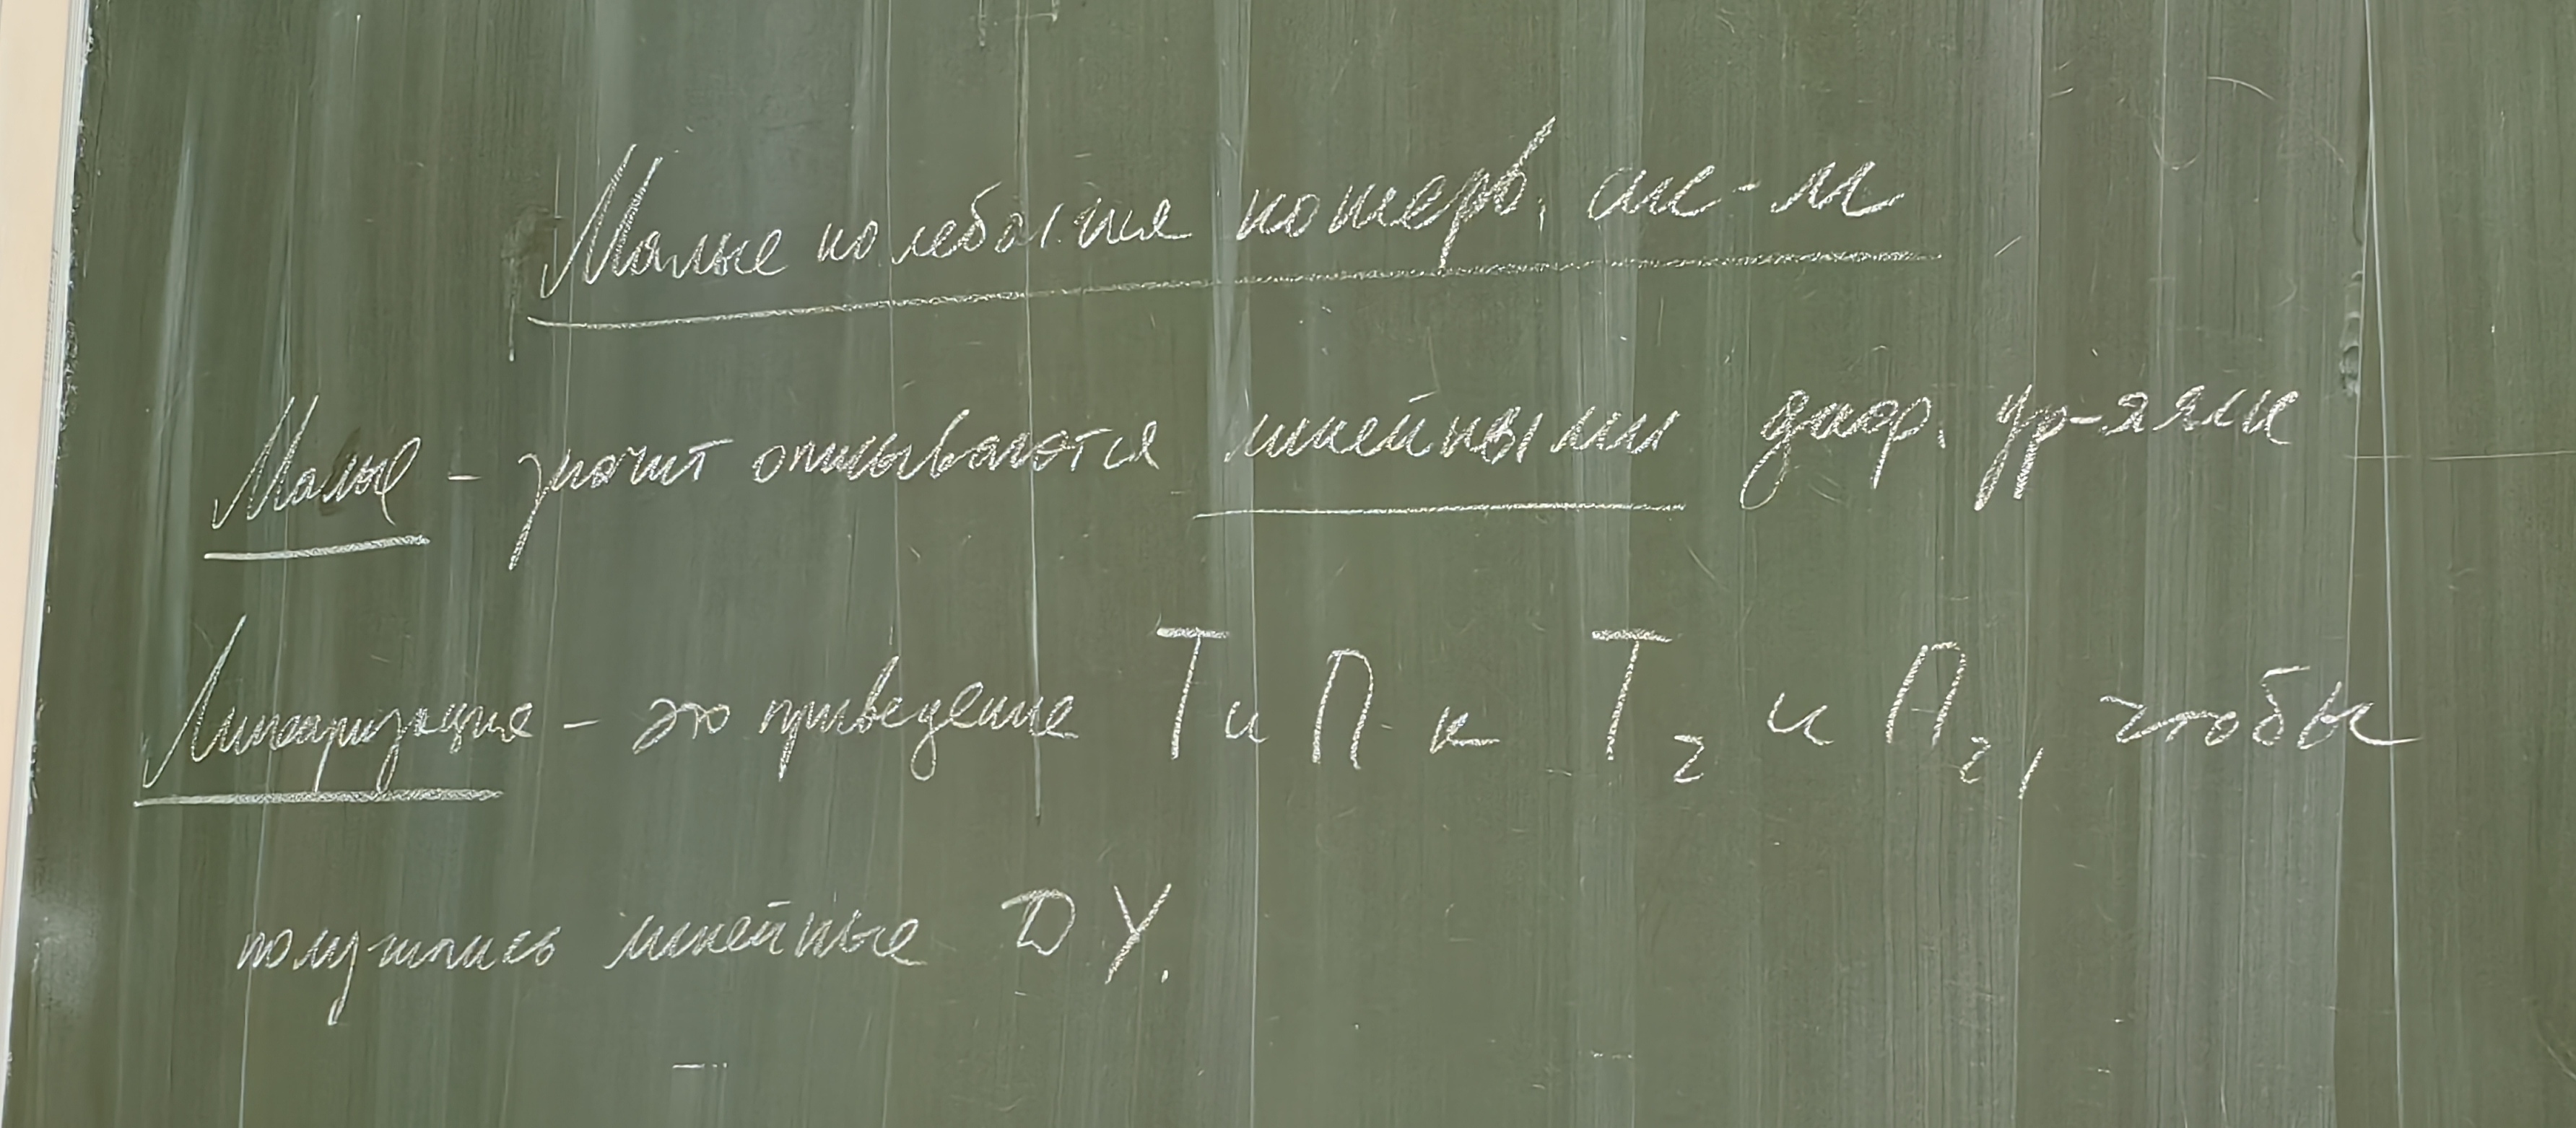 Малые колебания консерв. сис-м
Малые - значит описываются линейными диф. ур-ями
Линеаризация - это приведение T и П к T₂ и П₂, чтобы
получились линейные ДУ.